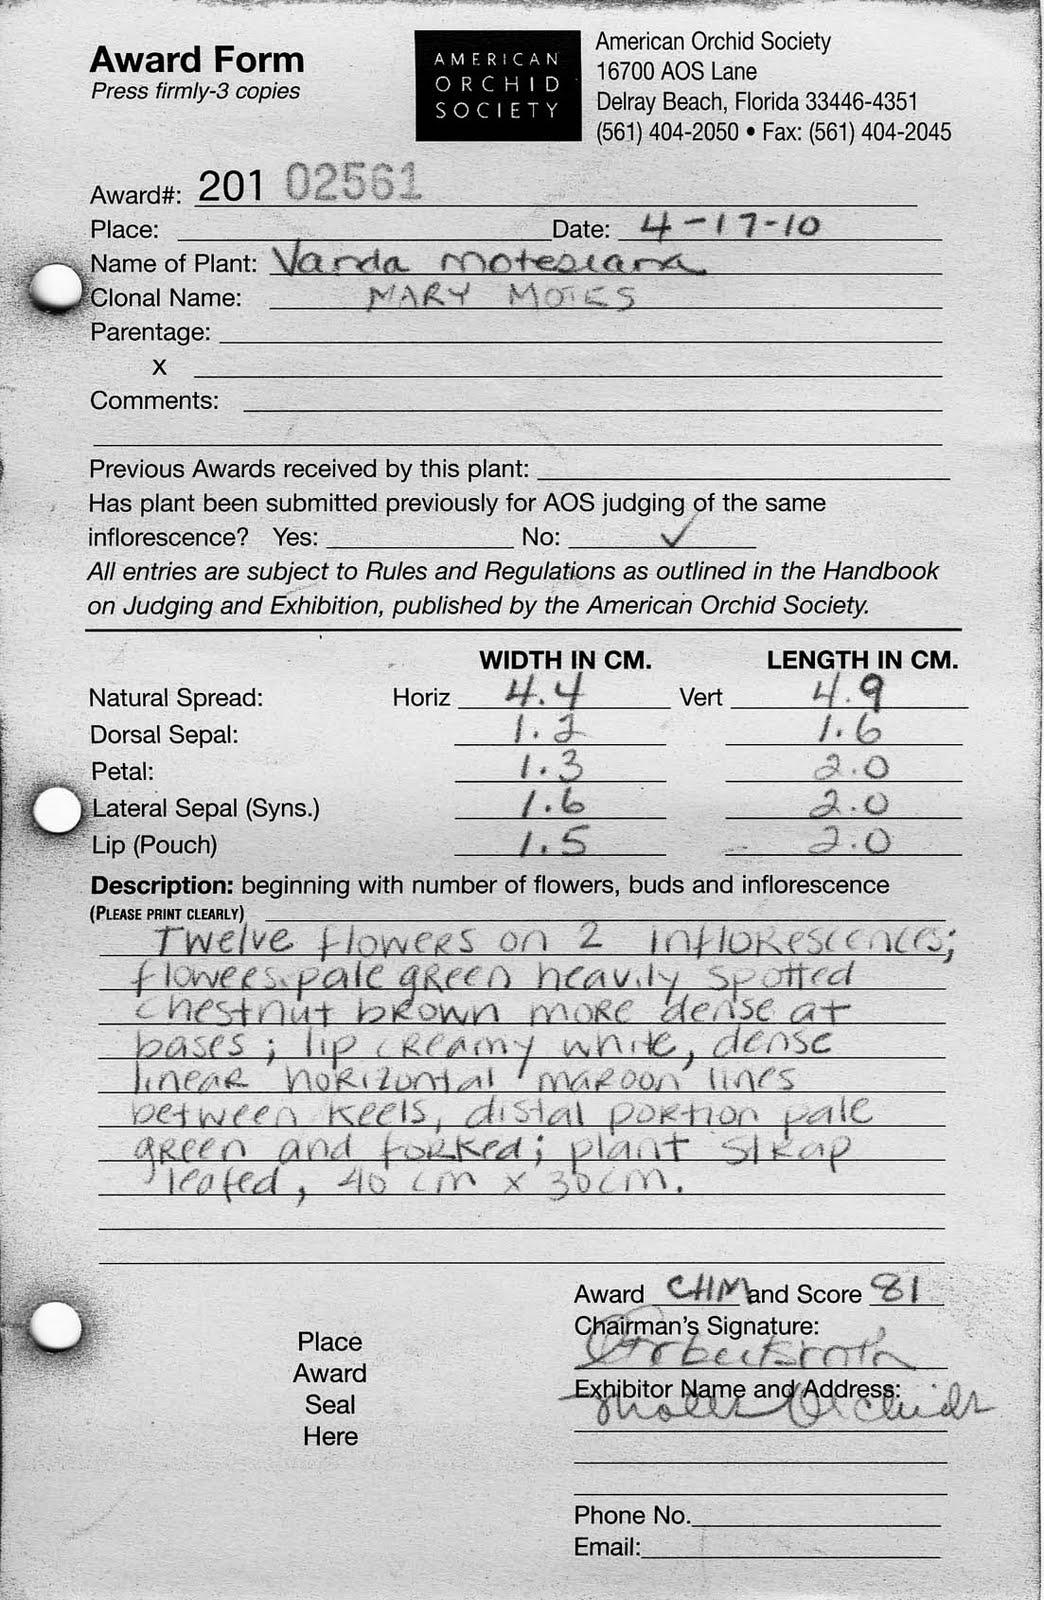 Award Form
Press firmly-3 copies
AMERICAN
ORCHID
SOCIETY
American Orchid Society
16700 AOS Lane
Delray Beach, Florida 33446-4351
(561) 404-2050 • Fax: (561) 404-2045
Award#: 201 02561
Place: Date: 4-17-10
Name of Plant: Vanda motesiana
Clonal Name: MARY MOTES
Parentage:
x
Comments:
Previous Awards received by this plant:
Has plant been submitted previously for AOS judging of the same
inflorescence? Yes: No: ✓
All entries are subject to Rules and Regulations as outlined in the Handbook
on Judging and Exhibition, published by the American Orchid Society.
WIDTH IN CM. LENGTH IN CM.
Natural Spread: Horiz 4.4 Vert 4.9
Dorsal Sepal: 1.2 1.6
Petal: 1.3 2.0
Lateral Sepal (Syns.) 1.6 2.0
Lip (Pouch) 1.5 2.0
Description: beginning with number of flowers, buds and inflorescence
(PLEASE PRINT CLEARLY)
Twelve flowers on 2 inflorescences;
flowers pale green heavily spotted
chestnut brown more dense at
bases; lip creamy white, dense
linear horizontal maroon lines
between keels, distal portion pale
green and forked; plant strap
leafed, 40 cm x 30 cm.
Award CHM and Score 81
Chairman's Signature:
Exhibitor Name and Address:
Motes Orchids
Place
Award
Seal
Here
Phone No.
Email: